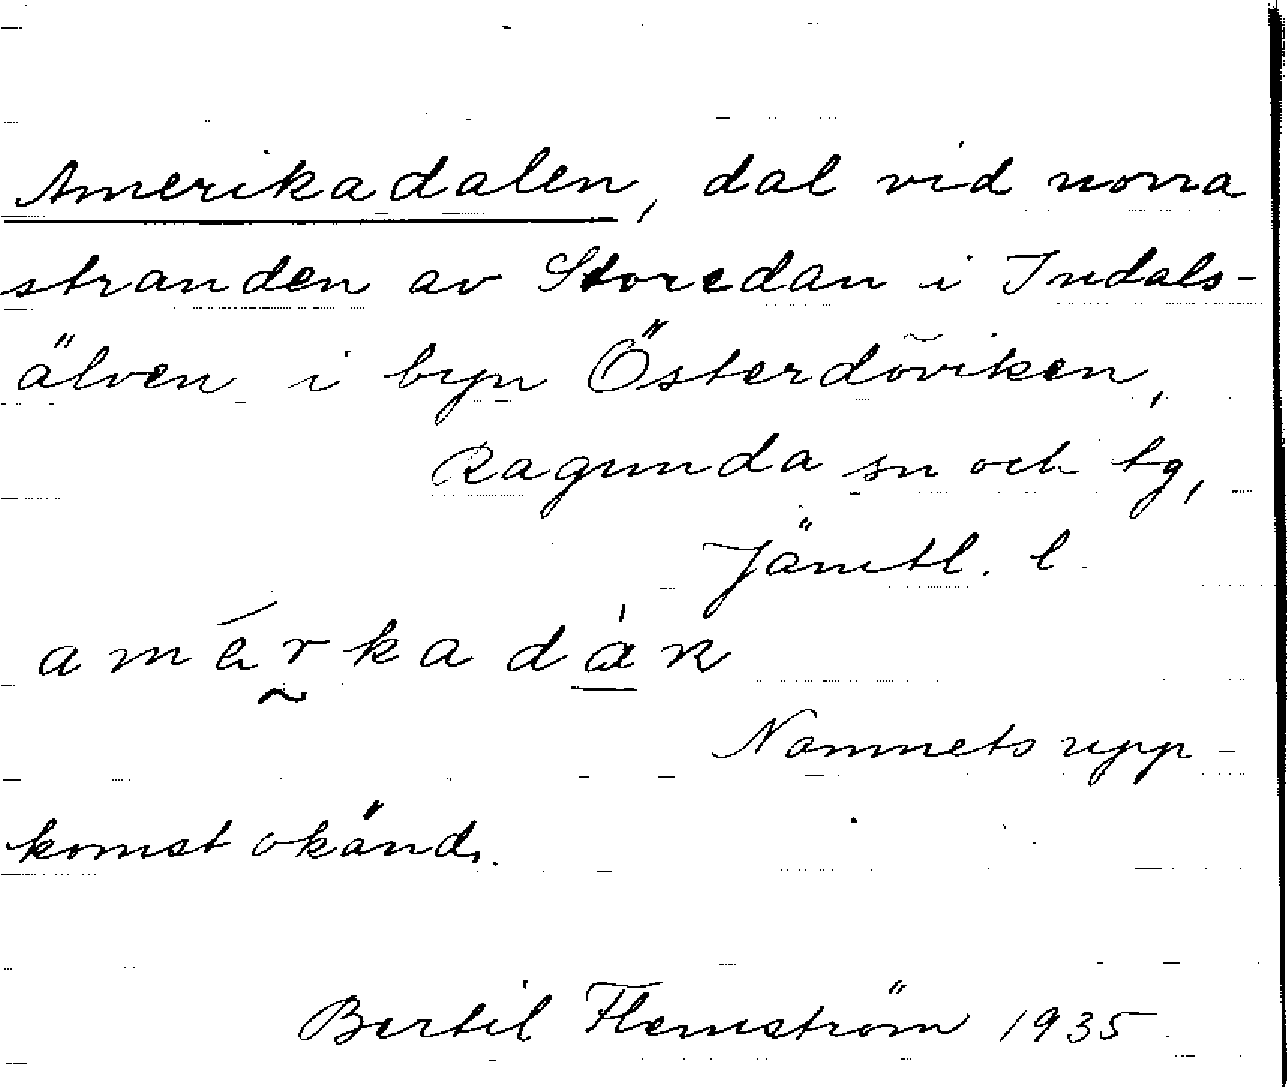 Amerikadalen, dal vid norra
stranden av Storedan i Indals-
älven i byn Österdöviken,
Ragunda sn och tg,
Jämtl. l.
Namnets upp-
komst okänd.
Bertil Flemström 1935